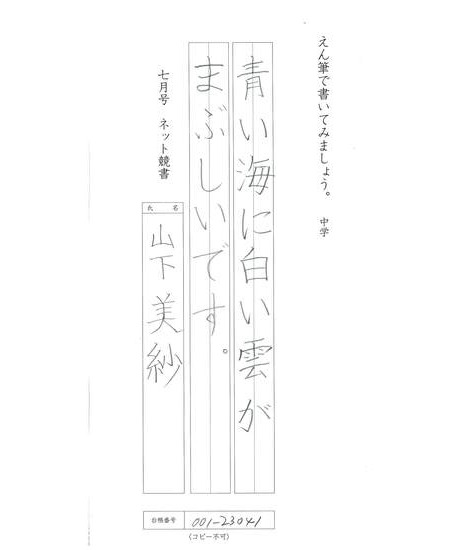 えん筆で書いてみましょう。 中学
青い海に白い雲が
まぶしいです。
七月号 ネット競書
氏名
山下美紗
台帳番号 001-23041
(コピー不可)